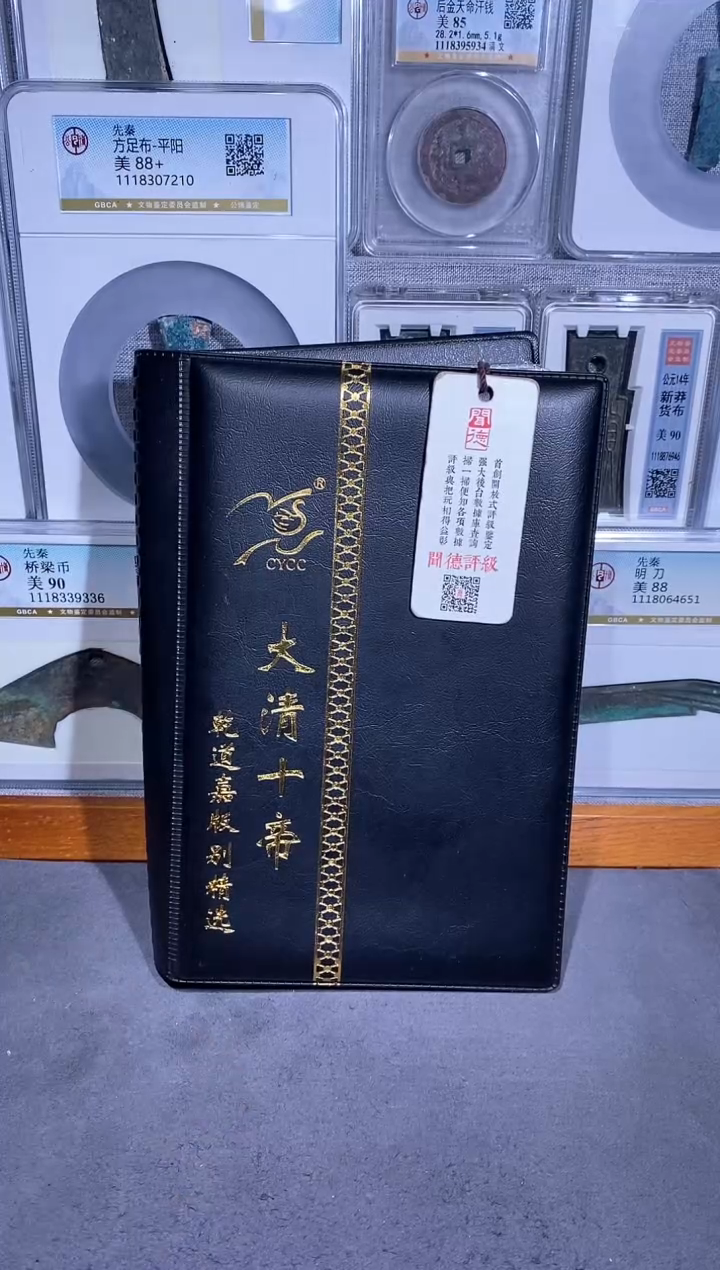 后金天命汗钱
美 85
28.2*1.6mm,5.1g
1118395934 满文
先秦
方足布-平阳
美 88+
1118307210
GBCA ★ 文物鉴定委员会监制 ★ 公博鉴定
公元14年
新莽
货布
美 90
1118876946
GBCA
先秦
桥梁币
美 90
1118339336
GBCA ★ 文物鉴定委员会监制 ★
先秦
明 刀
美 88
1118064651
GBCA ★ 文物鉴定委员会监制
聞德
首創開放式評級鑒定
强大後台數據庫查詢
掃一掃便知各項數據
評級與把玩相得益彰
聞德評級
®
CYCC
大清十帝
乾道嘉版别精选